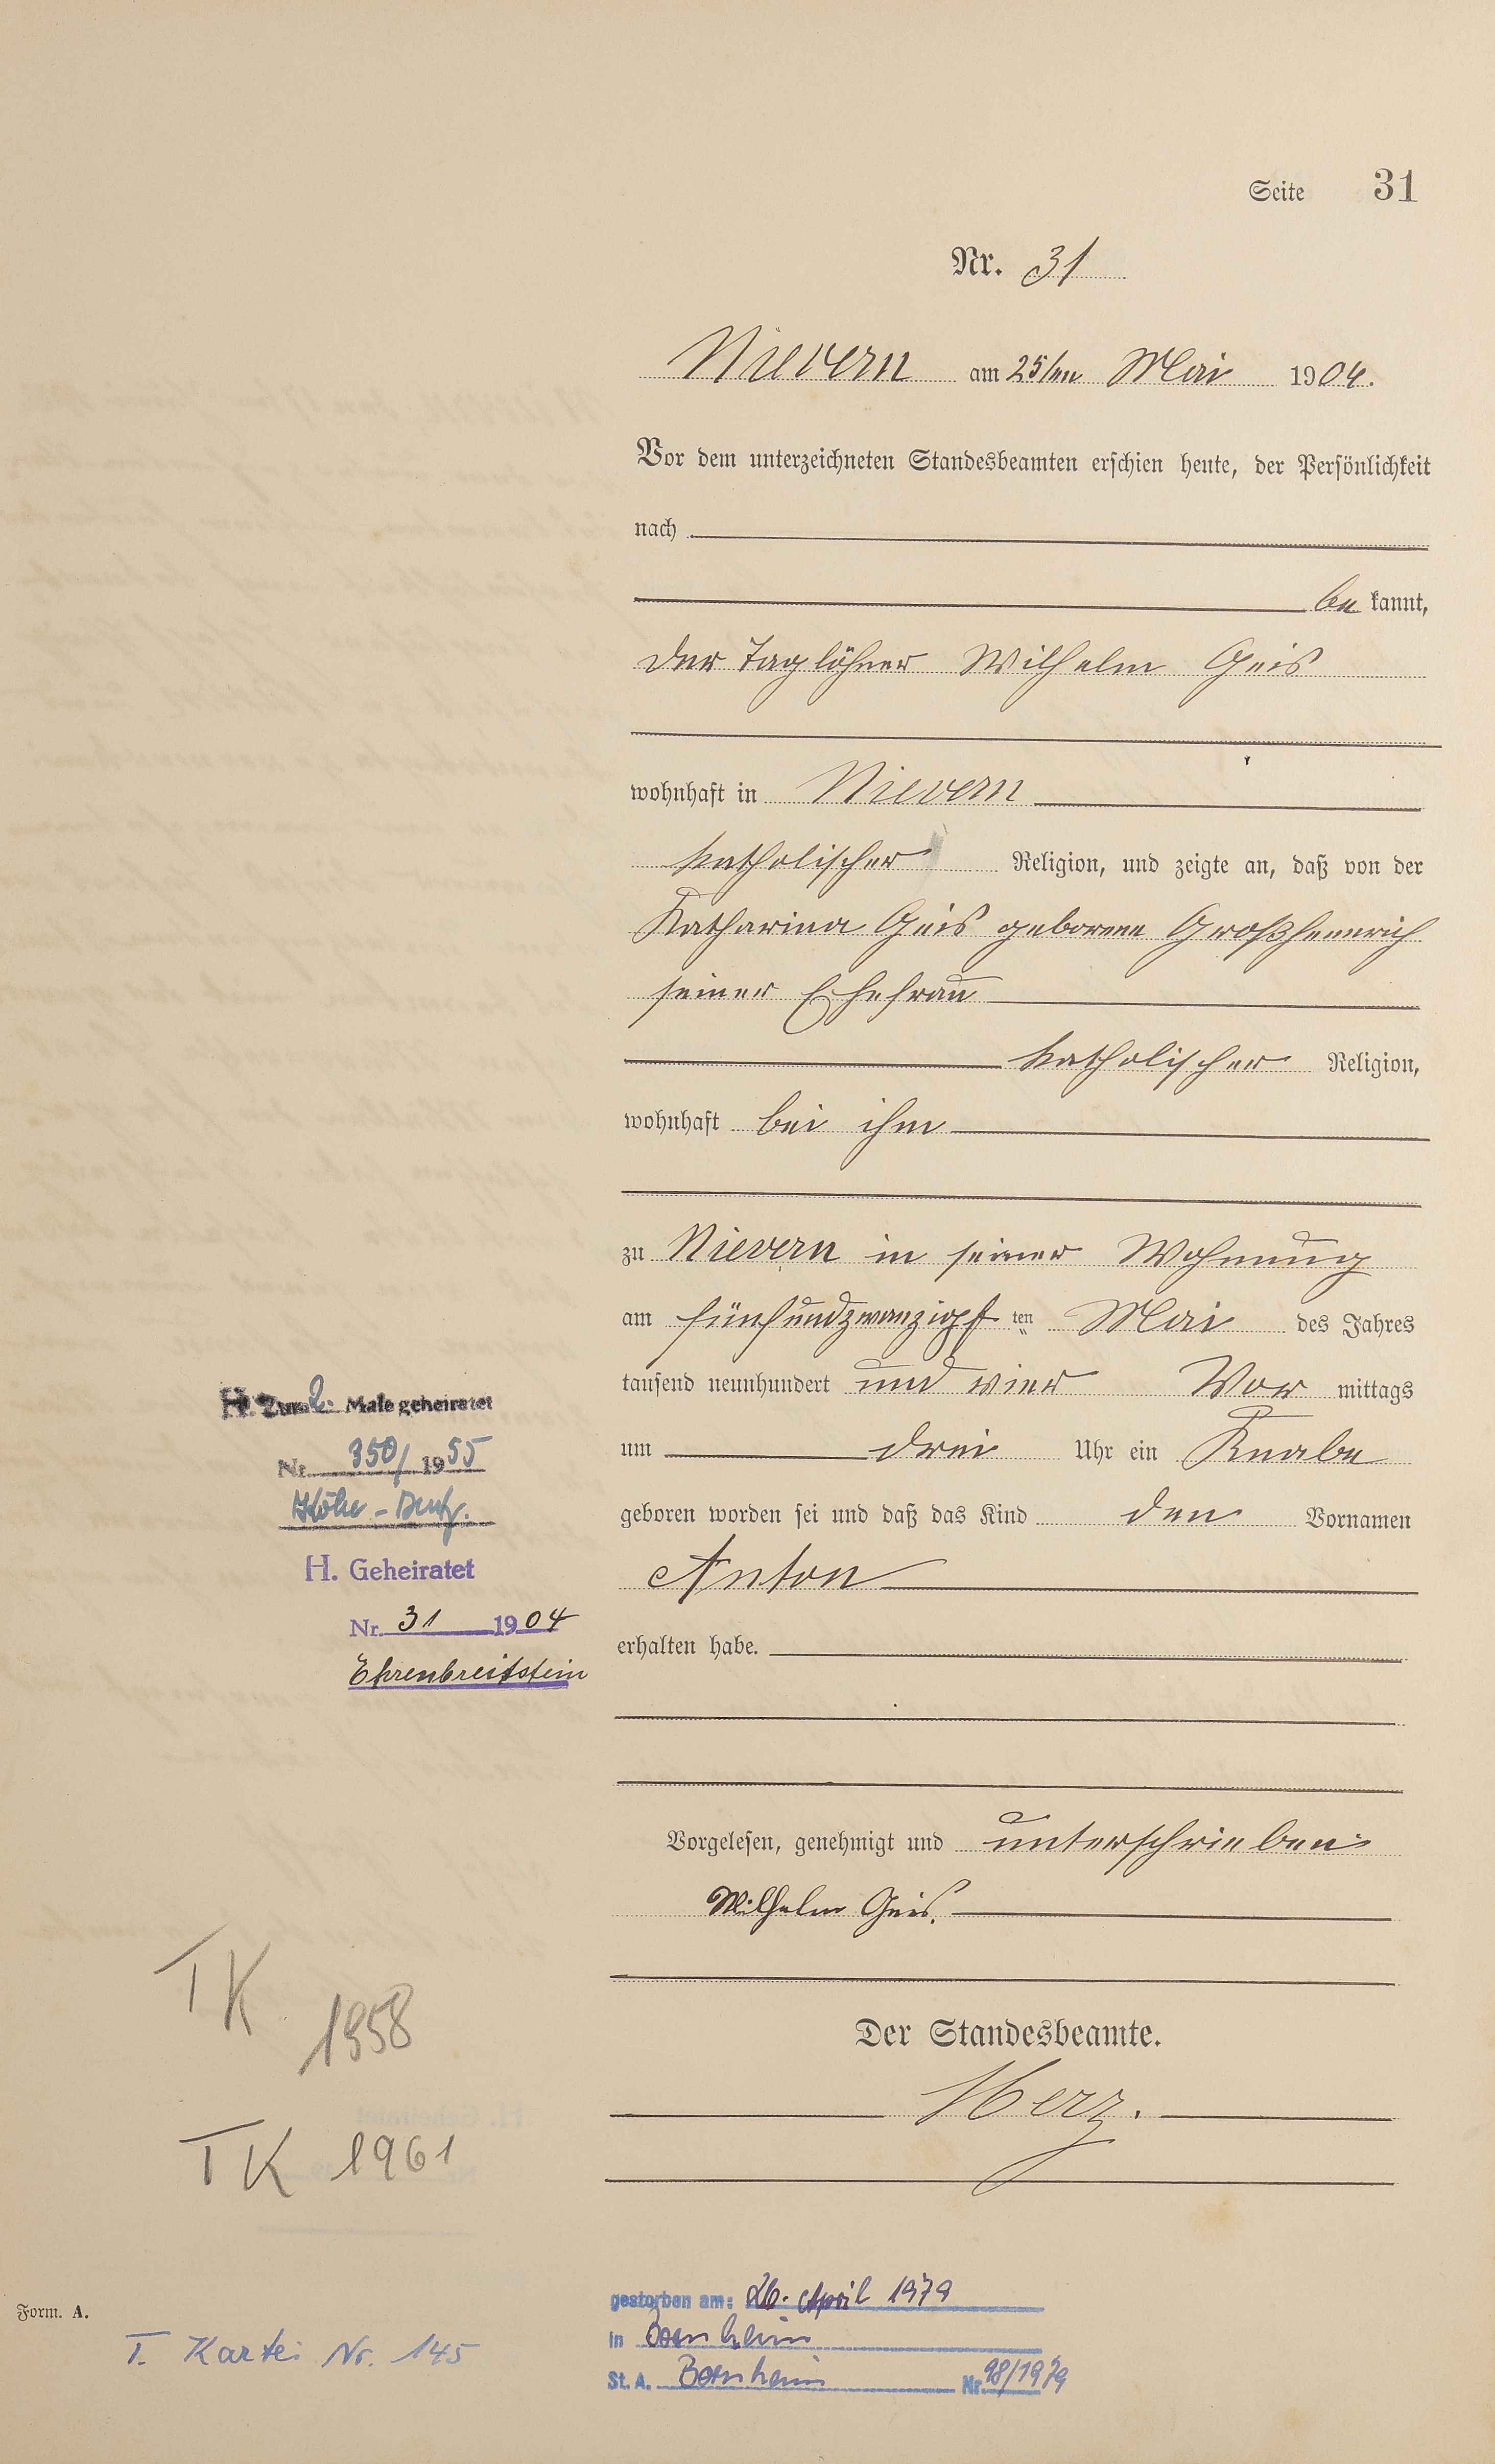 Seite 31
Nr. 31
Nievern am 25ten Mai 1904.
Vor dem unterzeichneten Standesbeamten erschien heute, der Persönlichkeit
nach
be kannt,
der Taglöhner Wilhelm Geis
wohnhaft in Nievern
katholischer Religion, und zeigte an, daß von der
Katharina Geis geborene Großhennrich
seiner Ehefrau
katholischer Religion,
wohnhaft bei ihm
zu Nievern in seiner Wohnung
am fünfundzwanzigsten Mai des Jahres
tausend neunhundert und vier Vor mittags
um drei Uhr ein Knabe
geboren worden sei und daß das Kind den Vornamen
Anton
erhalten habe.
Vorgelesen, genehmigt und unterschrieben
Wilhelm Geis.
Der Standesbeamte.
Herz.
H. Zum 2. Male geheiratet
Nr. 350/1955
Köln-Deutz.
H. Geheiratet
Nr. 31 1904
Ehrenbreitstein
TK 1958
TK 1961
Form. A.
T. Kartei Nr. 145
gestorben am: 26. April 1979
in Bornheim
St. A. Bornheim Nr. 98/1979